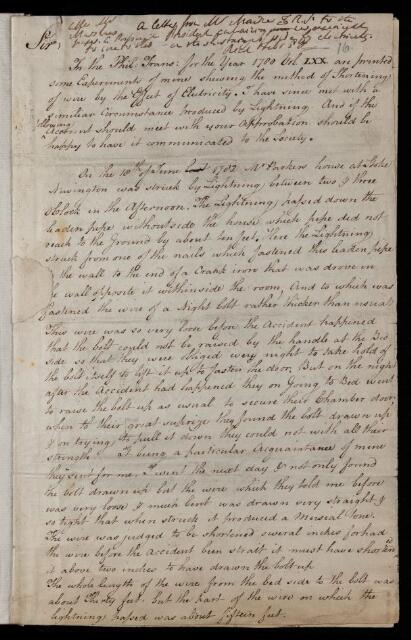 A letter from Mr Nairne F.R.S. to
Sir Joseph Banks
Sir,
16.
In the Phil: Trans: for the Year 1780 Vol. LXX are printed
some Experiments of mine shewing the method of Shortening
of wire by the Effect of Electricity. I have since met with a
similar Circumstance produced by Lightning. And if the
following
Account should meet with your Approbation should be
happy to have it communicated to the Society.
On the 10th of June 1782 Mr Parkers house at Stoke
Newington was struck by Lightning between two & three
OClock in the Afternoon. The Lightning passed down the
leaden pipe withoutside the house which pipe did not
reach to the ground by about ten feet. Here the Lightning
struck from one of the nails which fastened this leaden pipe
to the wall to the end of a Crank iron that was drove in
the wall opposite it withinside the room, And to which was
fastened the wire of a Night bolt rather thicker than usual
This wire was so very loose before the Accident happened
that the bolt could not be raised by the handle at the Bed
side so that they were obliged every night to take hold of
the bolt itself to lift it up to fasten the door, But on the night
after the Accident had happened they on Going to Bed went
to raise the bolt up as usual to secure their Chamber door,
when to their great surprize they found the bolt drawn up
& on trying to pull it down they could not with all their
strength. I being a particular Acquaintance of mine
they sent for me. I went the next day & not only found
the bolt drawn up but the wire which they told me before
was very loose & much bent was drawn very straight &
so tight that when struck it produced a Musical Tone.
The wire was judged to be shortened several inches for had
the wire before the accident been strait it must have shorten'd
it above two inches to have drawn the bolt up.
The whole length of the wire from the bed side to the bolt was
about Thirty feet. but the part of the wire on which the
lightning passed was about fifteen feet.